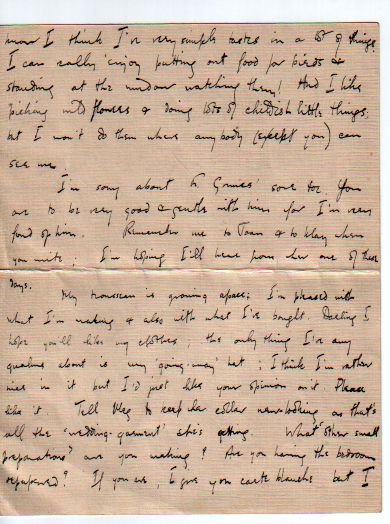 know I think I've very simple tastes in a lot of things.
I can really enjoy putting out food for birds &
standing at the window watching them! And I like
picking wild flowers & doing lots of childish little things,
but I won't do them where anybody (except you) can
see me.
I'm sorry about sore toe. You
are to be very good & gentle with him for I'm very
fond of him. Remember me to Joan & to May when
you write; I'm hoping I'll hear from her one of these
days.
My trousseau is growing apace; I'm pleased with
what I'm making & also with what I've bought. Darling I
hope you'll like my clothes; the only thing I've any
qualms about is my 'going-away' hat; I think I'm rather
nice in it but I'd just like your opinion on it. Please
like it. Tell Meg to keep her collar new-looking as that's
all the 'wedding-garment' she's getting. What other small
preparations are you making? Are you having the bedroom
repapered? If you are, I give you carte blanche but I